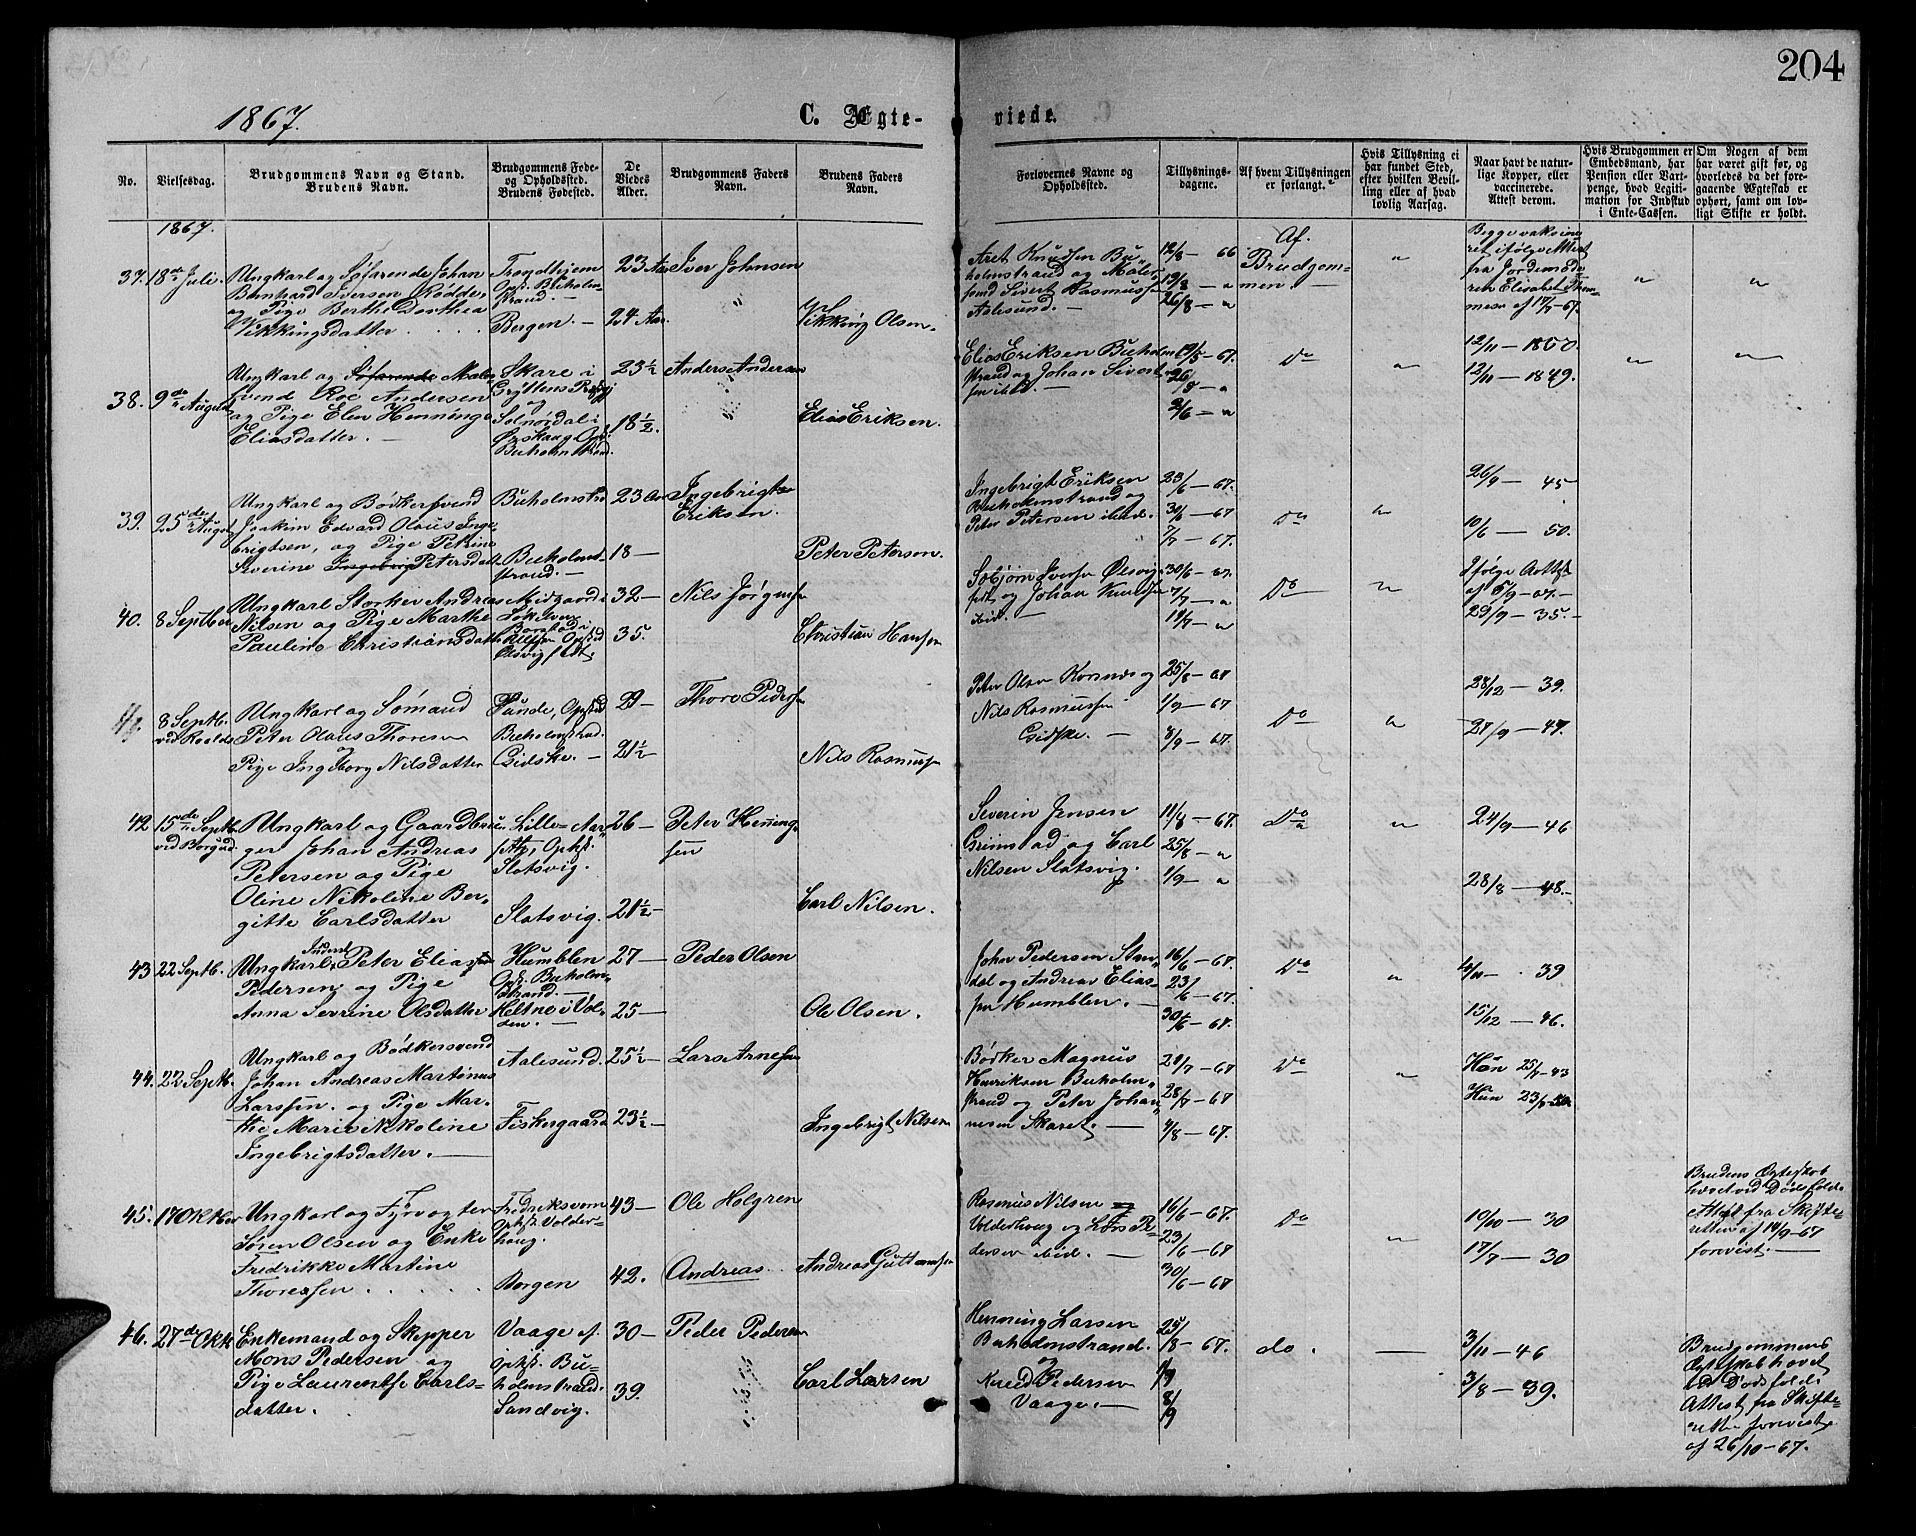 204
1867.
C. Ægte-
viede.
No.
Vielsesdag.
Brudgommens Navn og Stand.
Brudens Navn.
Brudgommens Føde-
og Opholdssted.
Brudens Fødested.
De
Viedes
Alder.
Brudgommens Faders
Navn.
Brudens Faders
Navn.
Forlovernes Navne og
Opholdssted.
Tillysnings-
dagene.
Af hvem Tillysningen
er forlangt.
Hvis Tillysning ei
har fundet Sted,
efter hvilken Bevil-
ling eller af hvad
lovlig Aarsag.
Naar havt de natur-
lige Kopper, eller
vaccinerede.
Attest derom.
Hvis Brudgommen er
Embedsmand, har
Pension eller Vart-
penge, hvad Legiti-
mation for Indskud
i Enke-Cassen.
Om Nogen af dem
har været gift før, og
hvorledes da det fore-
gaaende Ægteskab er
ophørt, samt om lov-
ligt Skifte er holdt.
1867.
37. 18de Juli.
Ungkarl og Søfarende Johan
Bernhard Iversen Rødde,
og Pige Berthe Dorthea
Vikkingsdatter
Trondhjem
Opt. Buholm-
strand. —
Bergen. —
23 Aar
24 Aar.
Iver Johnsen
Vikking Olsen.
Aret Knudsen Bu-
holmstrand og Maler-
svend Sivert Rasmussen
Aalesund. —
12/8 — 66
19/8 — "
26/8 — "
Af
Brudgom-
men. —
"
Begge vaksine-
ret ifølge Attest
fra Jordemode-
ren Elisabet
af 17/7-67.
"
"
38. 9de August
Ungkarl og Søfarende Maler-
svend Roe Andersen
og Pige Elen Henninge
Eliasdatter. —
Skare i
Gryttens Prgj
og
Solnørdal i
Ørskaug Opt.
Buholmstrand.
23½
18½.
Anders Andersen
Elias Eriksen.
Elias Eriksen Buholm-
strand og Johan Sivert-
sen ibid. —
19/5 — 67.
26/5 — "
2/6 — "
Do
"
12/11 — 1850.
12/11 — 1849.
"
39. 25de August
Ungkarl og Bødkersvend
Joakim Edvard Olaus Inge-
brigtsen, og Pige Petrine
Severine Ingeborg Petersdatt.
Buholmstrd
Buholm-
strand. —
23 Aar
18 —
Ingebrigt
Eriksen.
Peter Petersen.
Ingebrigt Eriksen
Buholmstrand og
Peter Petersen ibid.
23/6 — 67.
30/6 — 67
7/7 — 67.
Do
"
26/9 — 45
10/6 — 50.
40. 8 Septber
Ungkarl Storker Andreas
Nilsen og Pige Marthe
Pauline Christiansdatt
Midgaard i
Borgund i
Ølsvigfedt
32 —
35.
Nils Jørgensen
Christian Hansen
Søbjørn Iversen Ølsvig-
fedt og Johan Knudsen
ibid. —
30/6 — 67.
7/7 — "
14/7 — "
Do
"
Ifølge Attest
af 5/9-67. —
29/9 — 35. —
41. 8 Septb.
ved Roalds
Ungkarl og Sømand
Peter Olaus Thoresen
og
Pige Ingeborg Nilsdatter
Opsted
Buholmstrand.
Gidske. —
29 —
21½ —
Thore Pedersen
Nils Rasmussen
Peter Olsen Korsnæs og
Nils Rasmussen
Gidske. —
25/8 — 67
1/9 — 67
8/9 — 67.
Do
"
28/12 — 39.
27/9 — 47.
42 15de Septb.
ved Borgund
Ungkarl og Gaardbru-
ger Johan Andreas
Petersen og Pige
Oline Nikoline Ber-
gitte Carlsdatter
Lille-Aar-
Opt.
Slatsvig.
Slatsvig.
26 —
21½ —
Peter Hening-
sen
Carl Nilsen.
Severin Jensen
Grimstad og Carl
Nilsen Slatsvig.
11/8 — 67.
25/8 — "
1/9 — "
Do
"
24/9 — 46
28/8 — 48. —
43 22 Septb.
Ungkarl Peter Elias
Pedersen og Pige
Anna Serine Olsdatter
Humblen
Opt. Buholm-
strand. —
Heltne i Vol-
den. —
27 —
25 —
Peder Olsen
Ole Olsen.
John Pedersen Stan-
dal og Andreas Elias-
sen Humblen. —
16/6 — 67.
23/6 — 67.
30/6 — 67.
Do
"
4/11 — 39
15/12 — 46.
44. 22 Septb.
Ungkarl og Bødkersvend
Johan Andreas Martinus
Larssen. og Pige Mar-
the Marie Nikoline
Ingebrigtsdatter. —
Aalesund.
Fiskergaard
25½ —
23½ —
Lars Arnesen
Ingebrigt Nilsen
Bødker Magnus
Henriksen Buholm-
strand og Peter Johan-
nesen Skaret. —
21/7 — 67
28/7 — 67
4/8 — 67.
Do
"
Han 25/7 — 43
Hun 23/
45. 17 Oktber
Ungkarl og Fyrvogter
Søren Olsen og Enke
Fredrikke Martine
Thoresen
Fredriksværn
Opt. Volder-
houg.
Bergen
43 —
42.
Ole Holgren
Andreas
Andreas Guttormsen
Rasmus Nilsen
Volderhoug og Lars Pe-
dersen ibid. —
16/6 — 67.
23/6 — 67
30/6 — 67
Do
"
10/10 — 30
17/7 — 30
Brudens Ægteskab
hævet ved Dødsfald.
Attest fra Skifte-
retten af 14/9-67
forevist. —
46. 27de Oktb
Enkemand og Skipper
Mons Pedersen og
Pige Laurentse Carls-
datter.
Vaage
opht. Bu-
holmstrand.
Sandvig.
30 —
39.
Peder Pedersen
Carl Larsen
Henning Larsen
Buholmstrand.
og
Knud Pedersen
Vaage. —
25/8 — 67.
1/9
8/9
do.
—
3/11 — 46
3/8 — 39.
Brudgommens
Ægteskab hævet
ved Dødsfald.
Attest fra Skifte-
retten forevist
af 26/10-67.